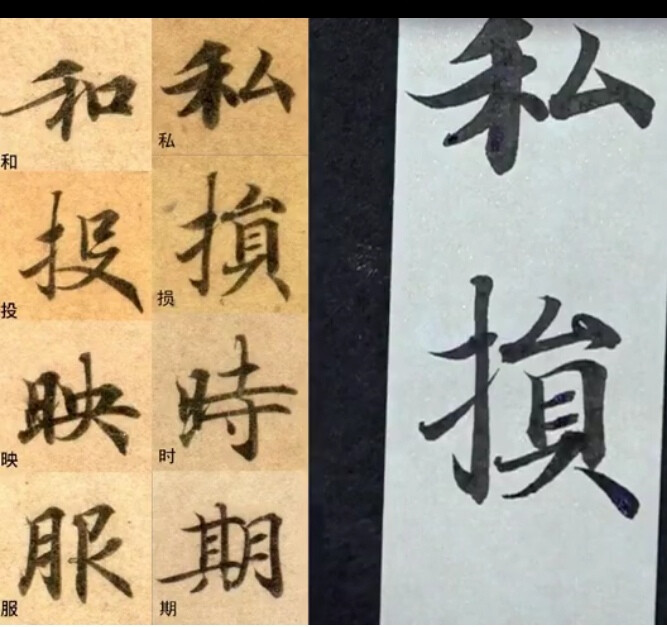 和 私
和 私
投 損
投 损
映 時
映 时
服 期
服 期
私
損